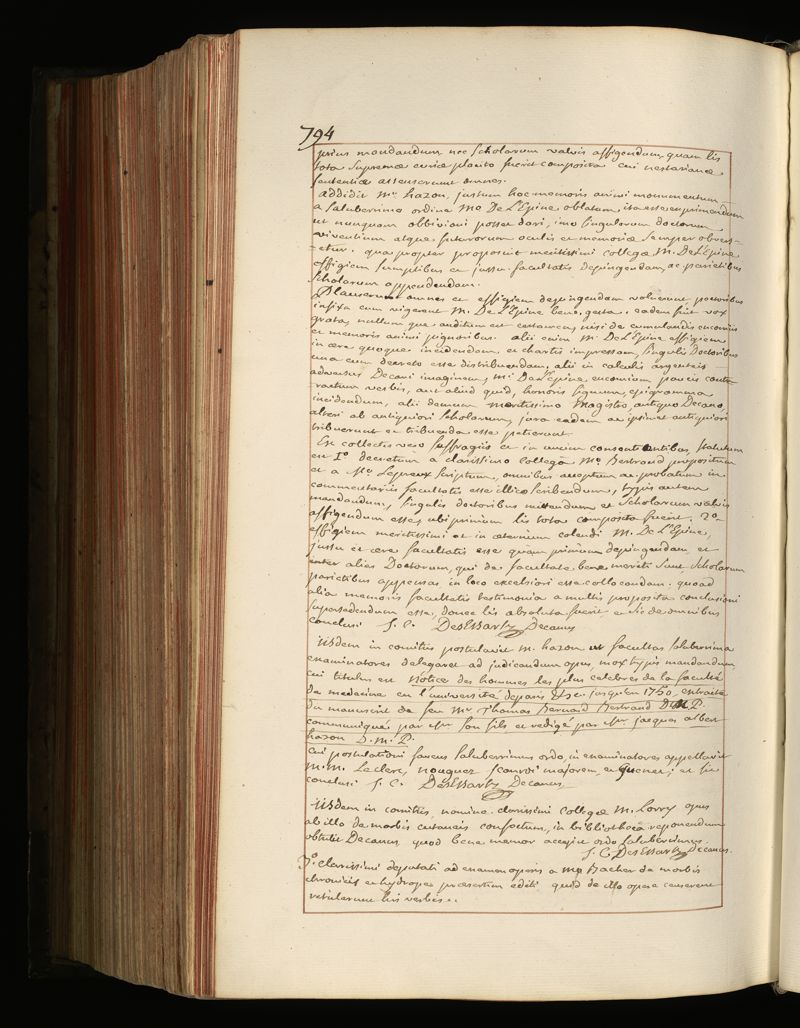 794
prius mandandum nec Scholarum valvis affigendum, quam lis
tota Supremae curiae placito fuerit composita cui nestorianae
sententiae assenserunt omnes.
addidit Mr. hazon, justum hoc memoris animi monumentum
a Saluberrimo ordine Mo De L'Epine oblatum, ita esse exprimendum
ut nunquam oblivioni posset dari, imo Singulorum doctorum
viventium atque futurorum oculis et memoriae Semper obvers-
-etur. quapropter proposuit meritissimi collegae M. De L'Epine
effigiem Sumptibus et jussu facultatis depingendam, ac parietibus
Scholarum appendendam.
Plauserunt omnes et effigiem depingendam voluerunt pectoribus
infixa cum vigerent M. De L'Epine bene gesta. eadem fuit vox
grata, nullum que auditum est certamen, nisi de cumulandis encomiis
et memoris animi pignoribus. alii enim M. De L'Epine effigiem
in aere quoque incidendam, et chartis impressam, Singulis Doctoribus
una cum decreto esse distribuendam, alii in calculis argenteis
adversus Decani imaginem, M. De L'Epine encomium paucis contr-
-actum verbis, aut aliud quid, honoris Signum, epigramma
incidendum, alii demum meritissimo Magistro, antiquo Decano,
alteri ab antiquiori Scholarum, jura eadem ac ipsimet antiquiori
tribuerunt et tribuenda esse petierunt.
Ex collectis vero Suffragiis et in unum consentientibus, Statutum
est 1o decretum a clarissimo collega Mo Bertrand propositum
et a Mo Lepreux Scriptum, omnibus acceptum ac probatum in
commentariis facultatis esse illico Scribendum, typis autem
mandandum, Singulis doctoribus mittendum et Scholarum valvis
affigendum esse, ubi primum lis tota composita fuerit. 2o
effigiem meritissimi et in aeternum colendi M. De L'Epine,
jussu et aere facultatis esse quam primum depingendam, et
inter alias Doctorum, qui de facultate bene meriti Sunt Scholarum
parietibus appensas in loco excelsiori esse collocandam. quoad
alia memoris facultatis testimonia a multis proposita conclusioni
Supersedendum esse, donec lis absoluta fuerit et Sic de omnibus
conclusi J. C. DesEssartz Decanus
iisdem in comitiis postulavit M. hazon ut facultas Saluberrima
examinatores delegaret ad judicandum opus mox typis mandandum,
cui titulus est Notice des hommes les plus celebres de la faculté
de medecine en l'université de paris &c. jusqu'en 1750, extraite
du manuscrit de feu Mr Thomas Bernard Bertrand D.M.P.
communiqué par Mr Son fils et redigé par Mr jacques albert
hazon D. M. P.
cui postulationi favens Saluberrimus ordo, in examinatores appellavit
M.M. Leclerc, nouguez, majorem, et Guenet; et Sic
conclusi J. C. DesEssartz Decanus
iisdem in comitiis, nomine clarissimi collegae M. Lorry opus
ab illo de morbis cutaneis confectum, in bibliotheca reponendum
obtulit Decanus, quod bene memor accepit ordo Saluberrimus.
J. C DesEssartz Decanus.
3o. clarissimi deputati ad examen operis a Mo Bacher de morbis
chronicis et hydrope praesertim editi quid de illo opere censerent
retulerunt his verbis..